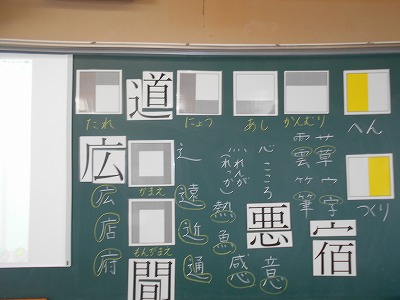 たれ
道
にょう
あし
かんむり
へん
広
広
店
府
かまえ
もんがまえ
間
辶
遠
近
通
灬れんが
(れっか)
熱
魚
感
心こころ
悪
意
雲
筆
艹
草
宀
字
宿
つくり